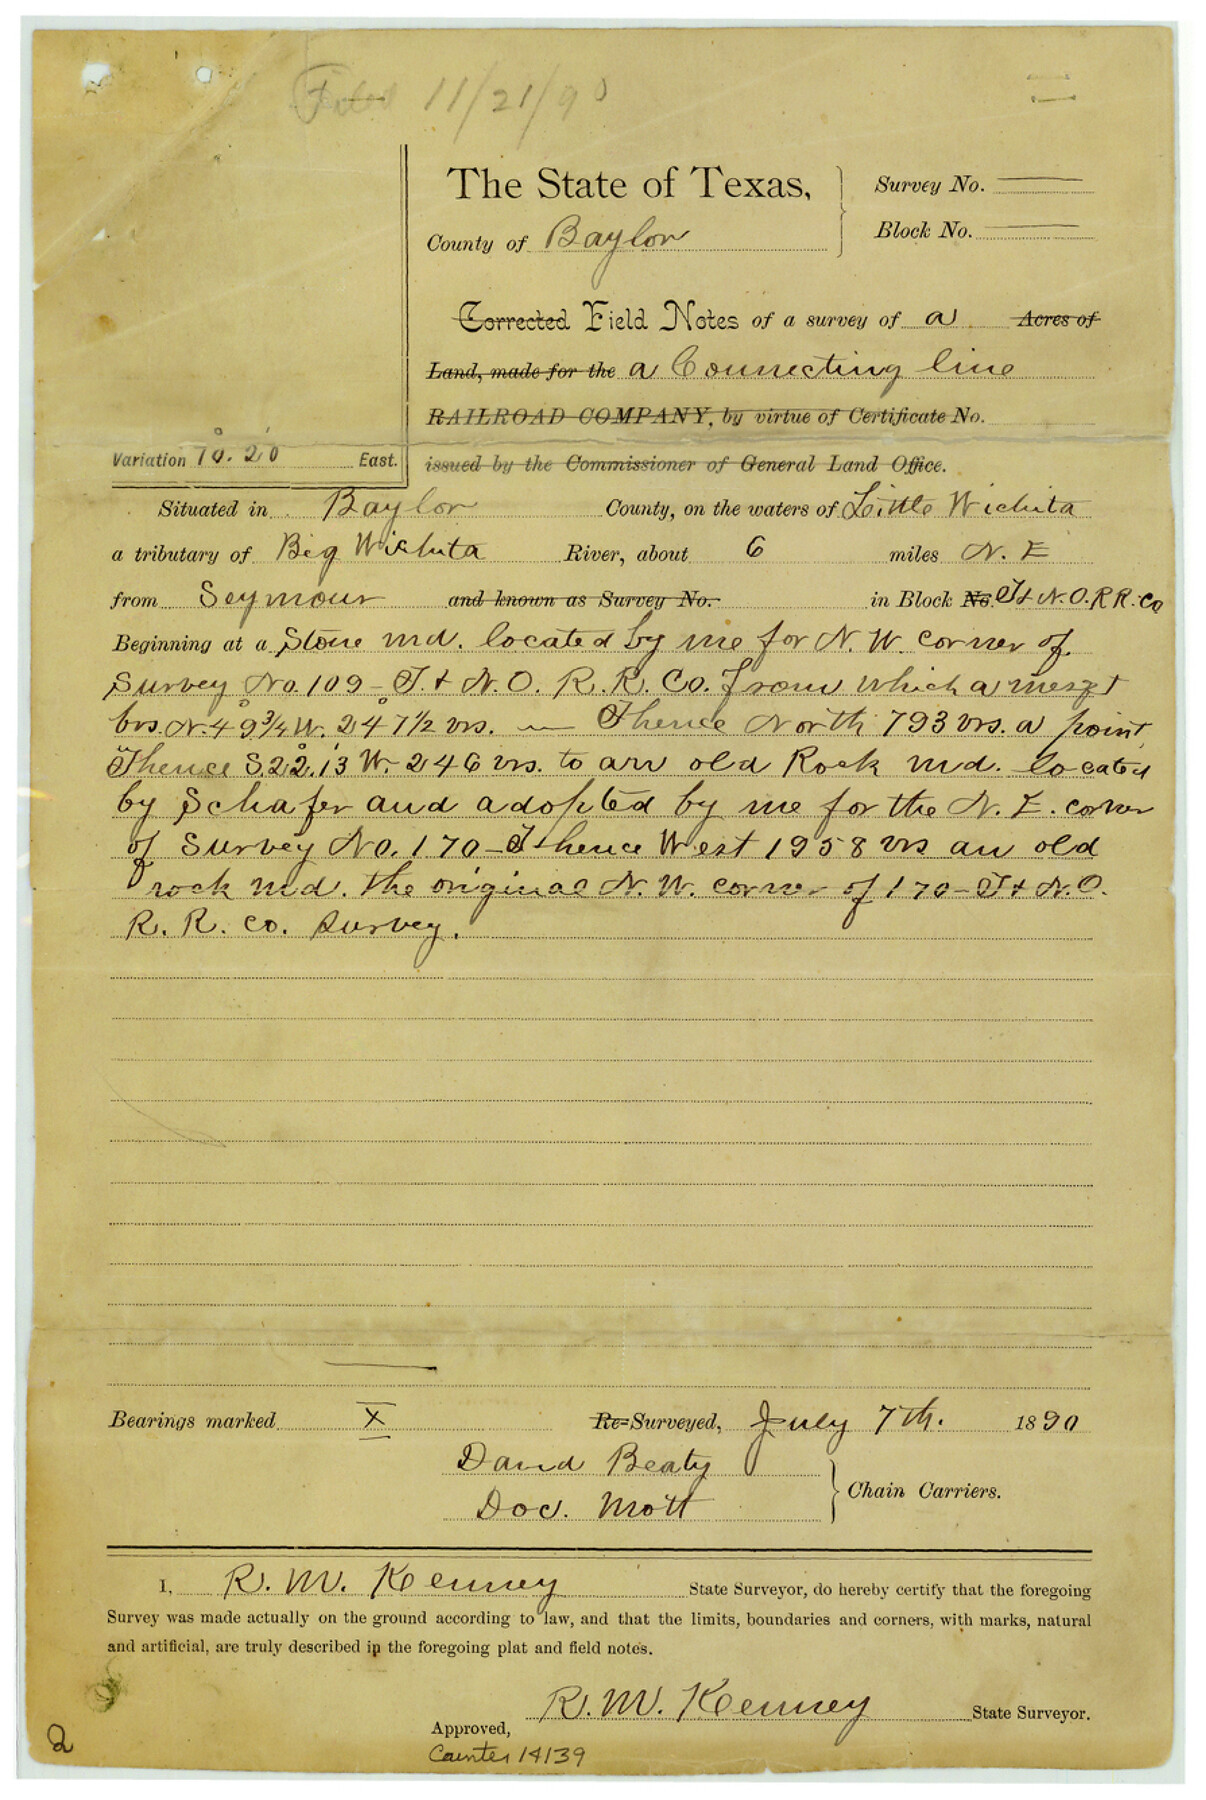 Filed 11/21/90
The State of Texas,
County of Baylor
Survey No.
Block No.
Corrected Field Notes of a survey of a Acres of
Land, made for the a Connecting line
RAILROAD COMPANY, by virtue of Certificate No.
issued by the Commissioner of General Land Office.
Variation 10°. 20' East.
Situated in Baylor County, on the waters of Little Wichita
a tributary of Big Wichita River, about 6 miles N. E
from Seymour and known as Survey No. in Block No. T & N.O. R R. Co
Beginning at a Stone md. located by me for N. W. corner of
Survey No. 109 - T. & N. O. R. R. Co. from which a mesqt
brs. N. 49° 3/4 W. 24° 7 1/2 vrs. — Thence North 793 vrs. a point
Thence S. 22°. 13' W. 246 vrs. to an old Rock md. located
by Schafer and adopted by me for the N. E. corner
of Survey No. 170 - Thence West 1958 vrs an old
rock md. the original N. W. corner of 170 - T & N. O.
R. R. Co. Survey.
Bearings marked X Re-Surveyed, July 7th. 1890
David Beaty
Doc. Mott
Chain Carriers.
I, R. M. Kenney State Surveyor, do hereby certify that the foregoing
Survey was made actually on the ground according to law, and that the limits, boundaries and corners, with marks, natural
and artificial, are truly described in the foregoing plat and field notes.
R. M. Kenney State Surveyor.
Approved,
Counter 14139
2